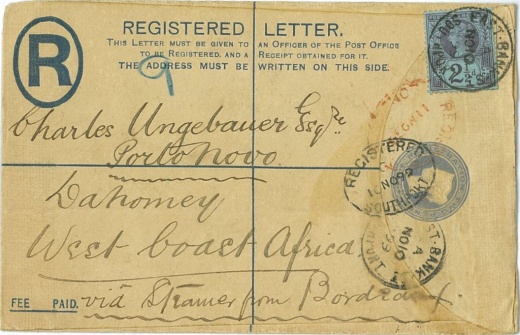 REGISTERED LETTER.
THIS LETTER MUST BE GIVEN TO AN OFFICER OF THE POST OFFICE
TO BE REGISTERED, AND A RECEIPT OBTAINED FOR IT.
THE ADDRESS MUST BE WRITTEN ON THIS SIDE.
R
9
2½d
EAST-BANK
NO 10
Charles Ungebauer Esqre
Porto Novo
REGISTERED
10 NO 92
SOUTHPORT
Dahomey
West Coast Africa
EAST-BANK
A
NO 10
FEE PAID.
viâ Steamer from Bordeaux.